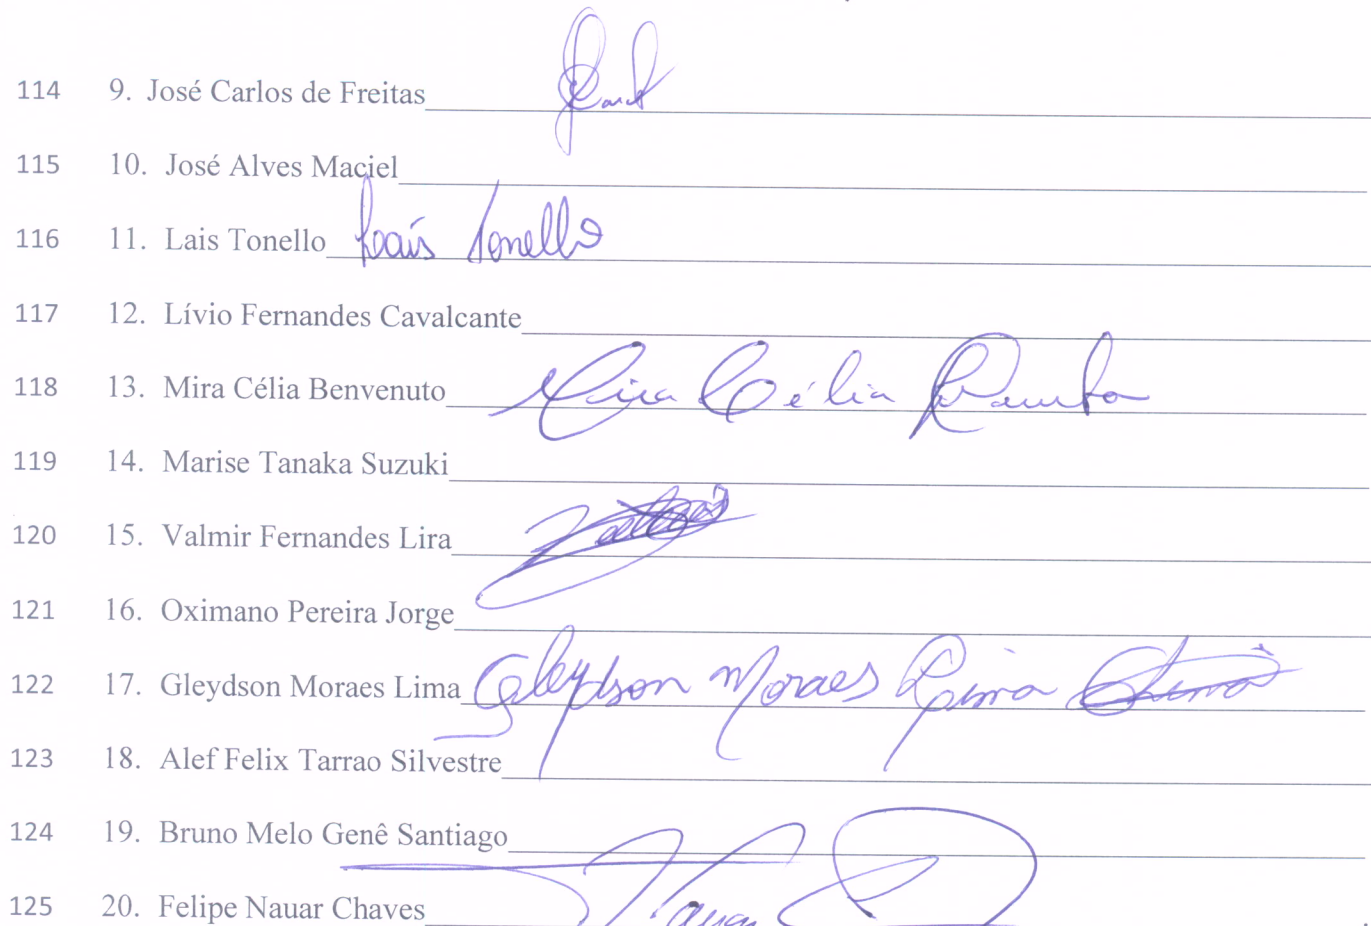 114 9. José Carlos de Freitas
115 10. José Alves Maciel
116 11. Lais Tonello Laís Tonello
117 12. Lívio Fernandes Cavalcante
118 13. Mira Célia Benvenuto Mira Célia
119 14. Marise Tanaka Suzuki
120 15. Valmir Fernandes Lira
121 16. Oximano Pereira Jorge
122 17. Gleydson Moraes Lima Gleydson Moraes Lima
123 18. Alef Felix Tarrao Silvestre
124 19. Bruno Melo Genê Santiago
125 20. Felipe Nauar Chaves